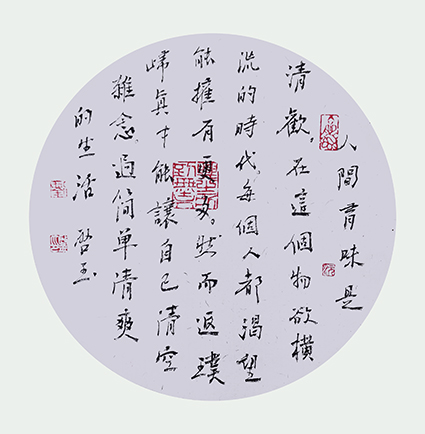 人間有味是
清歡。在這個物欲橫
流的時代。每個人都渴望
能擁有更多。然而返璞
歸真才能讓自己清空
雜念。過简单清爽
的生活 啓玉